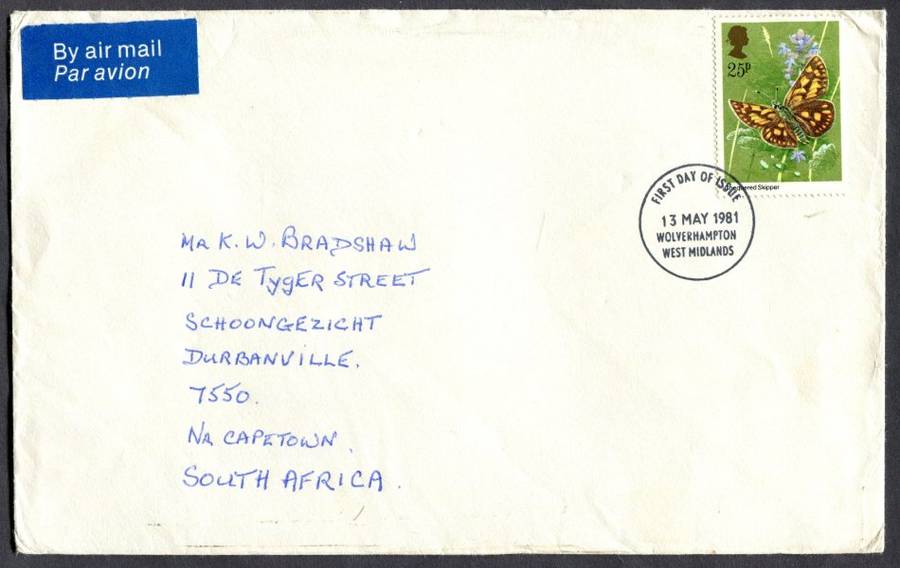 By air mail
Par avion
25P
Chequered Skipper
FIRST DAY OF ISSUE
13 MAY 1981
WOLVERHAMPTON
WEST MIDLANDS
MR K. W. BRADSHAW
11 DE TYGER STREET
SCHOONGEZICHT
DURBANVILLE.
7550.
NR CAPETOWN.
SOUTH AFRICA.